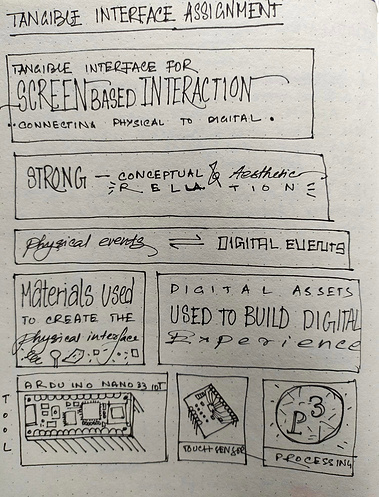 TANGIBLE INTERFACE ASSIGNMENT
TANGIBLE INTERFACE FOR
SCREEN BASED INTERACTION
CONNECTING PHYSICAL TO DIGITAL
STRONG — CONCEPTUAL & Aesthetic
RELATION
Physical events ⇌ DIGITAL EVENTS
Materials Used
TO CREATE THE
Physical interface
DIGITAL ASSETS
USED TO BUILD DIGITAL
Experience
TOOL
ARDUINO NANO 33 IOT
TOUCH SENSOR
P3
PROCESSING